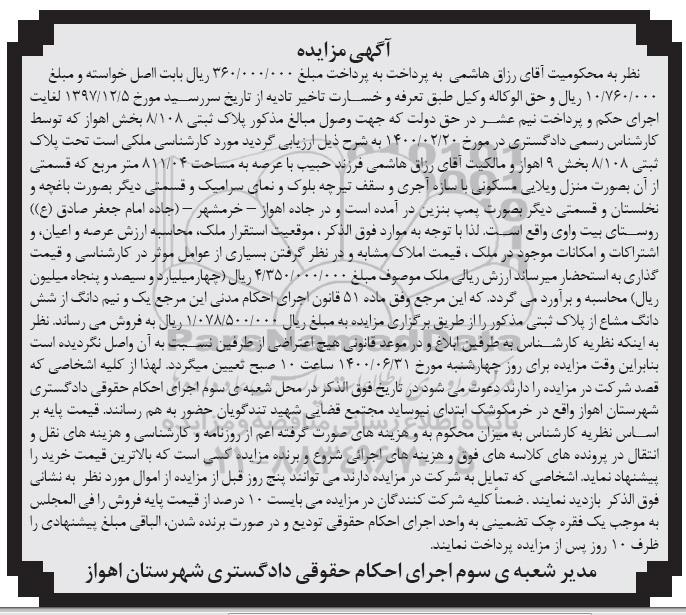 آگهی مزایده
نظر به محکومیت آقای رزاق هاشمی به پرداخت به پرداخت مبلغ ۳۶۰/۰۰۰/۰۰۰ ریال بابت ااصل خواسته و مبلغ
۱۰/۷۶۰/۰۰۰ ریال و حق الوکاله وکیل طبق تعرفه و خسارت تاخیر تادیه از تاریخ سررسید مورخ ۱۳۹۷/۱۲/۵ لغایت
اجرای حکم و پرداخت نیم عشر در حق دولت که جهت وصول مبالغ مذکور پلاک ثبتی ۸/۱۰۸ بخش اهواز که توسط
کارشناس رسمی دادگستری در مورخ ۱۴۰۰/۰۲/۲۰ به شرح ذیل ارزیابی گردید مورد کارشناسی ملکی است تحت پلاک
ثبتی ۸/۱۰۸ بخش ۹ اهواز و مالکیت آقای رزاق هاشمی فرزند حبیب با عرصه به مساحت ۸۱۱/۰۴ متر مربع که قسمتی
از آن بصورت منزل ویلایی مسکونی با سازه آجری و سقف تیرچه بلوک و نمای سرامیک و قسمتی دیگر بصورت باغچه و
نخلستان و قسمتی دیگر بصورت پمپ بنزین در آمده است و در جاده اهواز – خرمشهر – (جاده امام جعفر صادق (ع))
روستای بیت واوی واقع است. لذا با توجه به موارد فوق الذکر ، موقعیت استقرار ملک، محاسبه ارزش عرصه و اعیان، و
اشتراکات و امکانات موجود در ملک ، قیمت املاک مشابه و در نظر گرفتن بسیاری از عوامل موثر در کارشناسی و قیمت
گذاری به استحضار میرساند ارزش ریالی ملک موصوف مبلغ ۴/۳۵۰/۰۰۰/۰۰۰ ریال (چهارمیلیارد و سیصد و پنجاه میلیون
ریال) محاسبه و برآورد می گردد. که این مرجع وفق ماده ۵۱ قانون اجرای احکام مدنی این مرجع یک و نیم دانگ از شش
دانگ مشاع از پلاک ثبتی مذکور را از طریق برگزاری مزایده به مبلغ ریال ۱/۰۷۸/۵۰۰/۰۰۰ ریال به فروش می رساند. نظر
به اینکه نظریه کارشناس به طرفین ابلاغ و در موعد قانونی هیچ اعتراضی از طرفین نسبت به آن واصل نگردیده است
بنابراین وقت مزایده برای روز چهارشنبه مورخ ۱۴۰۰/۰۶/۳۱ ساعت ۱۰ صبح تعیین میگردد. لهذا از کلیه اشخاصی که
قصد شرکت در مزایده را دارند دعوت می شود در تاریخ فوق الذکر در محل شعبه ی سوم اجرای احکام حقوقی دادگستری
شهرستان اهواز واقع در خرمکوشک ابتدای نیوساید مجتمع قضایی شهید تندگویان حضور به هم رسانند. قیمت پایه بر
اساس نظریه کارشناس به میزان محکوم به و هزینه های صورت گرفته اعم از روزنامه و کارشناسی و هزینه های نقل و
انتقال در پرونده های کلاسه های فوق و هزینه های اجرائی شروع و برنده مزایده کسی است که بالاترین قیمت خرید را
پیشنهاد نماید. اشخاصی که تمایل به شرکت در مزایده دارند می توانند پنج روز قبل از مزایده از اموال مورد نظر به نشانی
فوق الذکر بازدید نمایند . ضمناً کلیه شرکت کنندگان در مزایده می بایست ۱۰ درصد از قیمت پایه فروش را فی المجلس
به موجب یک فقره چک تضمینی به واحد اجرای احکام حقوقی تودیع و در صورت برنده شدن، الباقی مبلغ پیشنهادی را
ظرف ۱۰ روز پس از مزایده پرداخت نمایند.
مدیر شعبه ی سوم اجرای احکام حقوقی دادگستری شهرستان اهواز